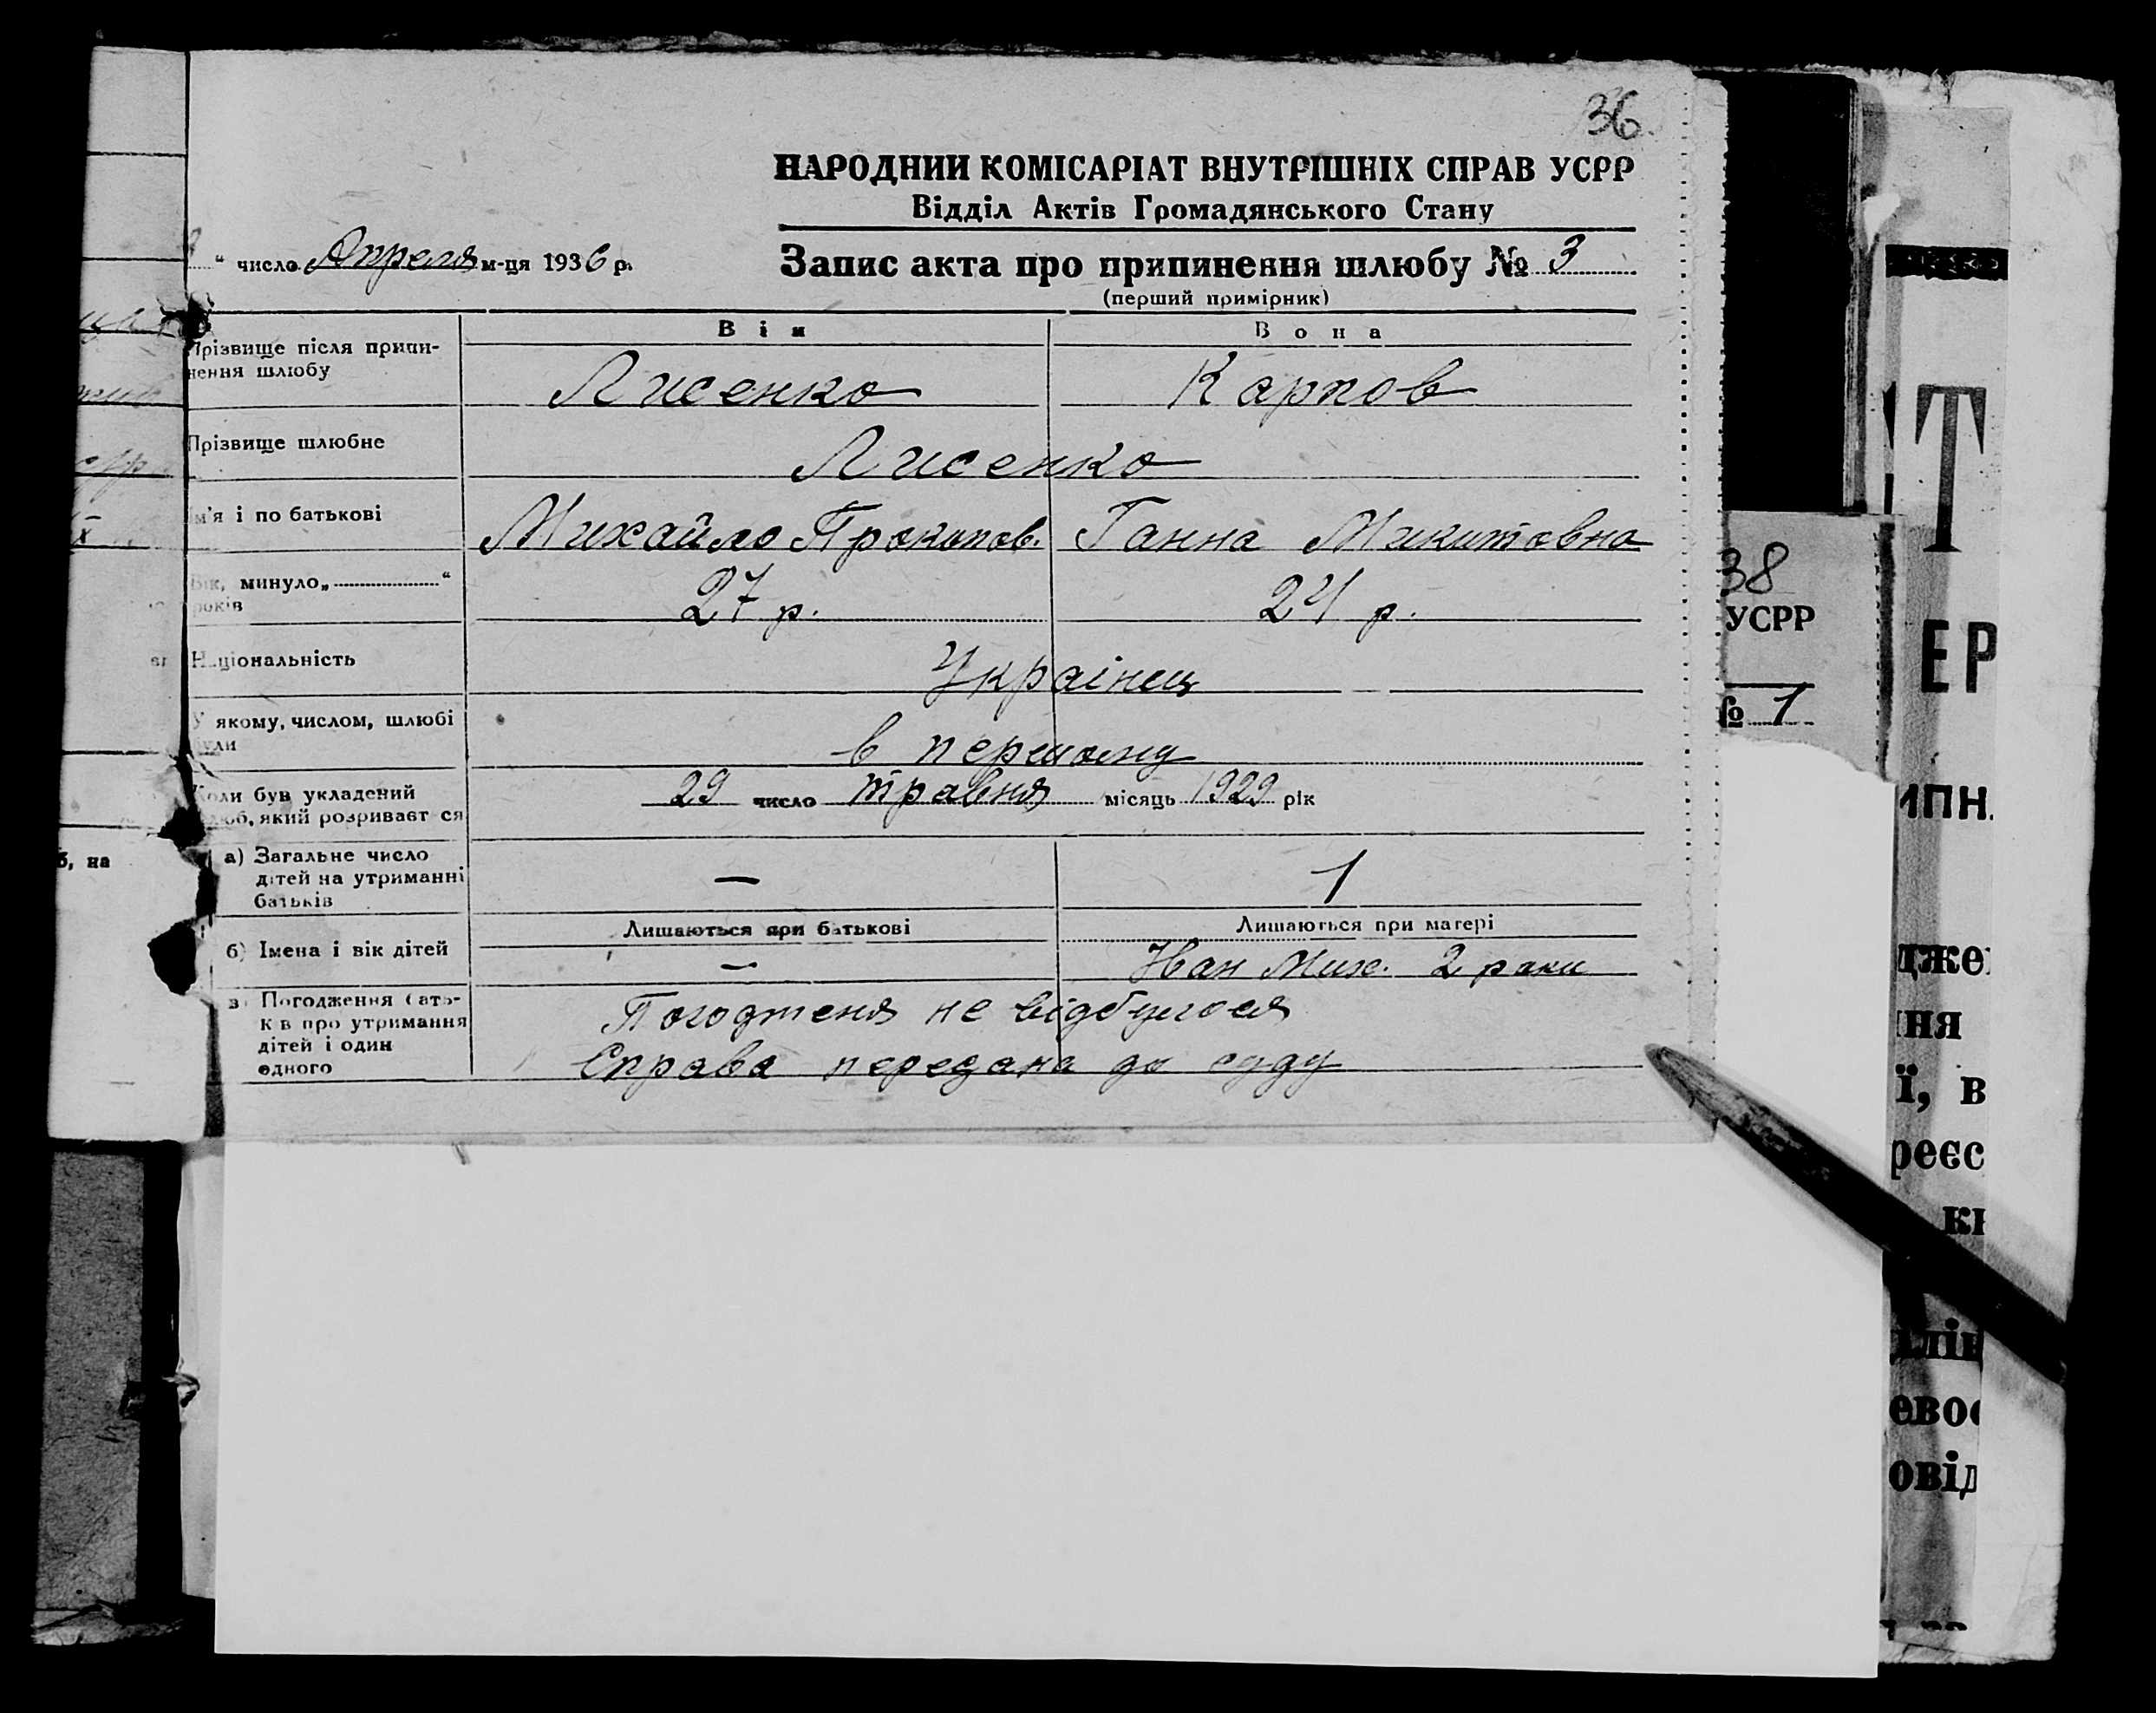 36.
НАРОДНИЙ КОМІСАРІАТ ВНУТРІШНІХ СПРАВ УСРР
Відділ Актів Громадянського Стану
“ число Апреля м-ця 1936 р.
Запис акта про припинення шлюбу № 3
(перший примірник)
Він Вона
Прізвище після припинення шлюбу Лисенко Карпов
Прізвище шлюбне Лисенко
Ім'я і по батькові Михайло Прокопов. Ганна Микитовна
Вік, минуло „ “ років 27 р. 24 р.
Національність Украінец
У якому, числом, шлюбі були в першому
Коли був укладений шлюб, який розривається 29 число травня місяць 1929 рік
а) Загальне число дітей на утриманні батьків — 1
Лишаються при батькові Лишаються при матері
б) Імена і вік дітей — Іван Мих. 2 роки
в) Погодження батьків про утримання дітей і один одного Погодженя не відбулося
Справа передана до суду
б, на
38
УСРР
№ 1
Т
ЕР
ипн.
дже
ня
ї, в
реєс
кн
лін
ево
овід